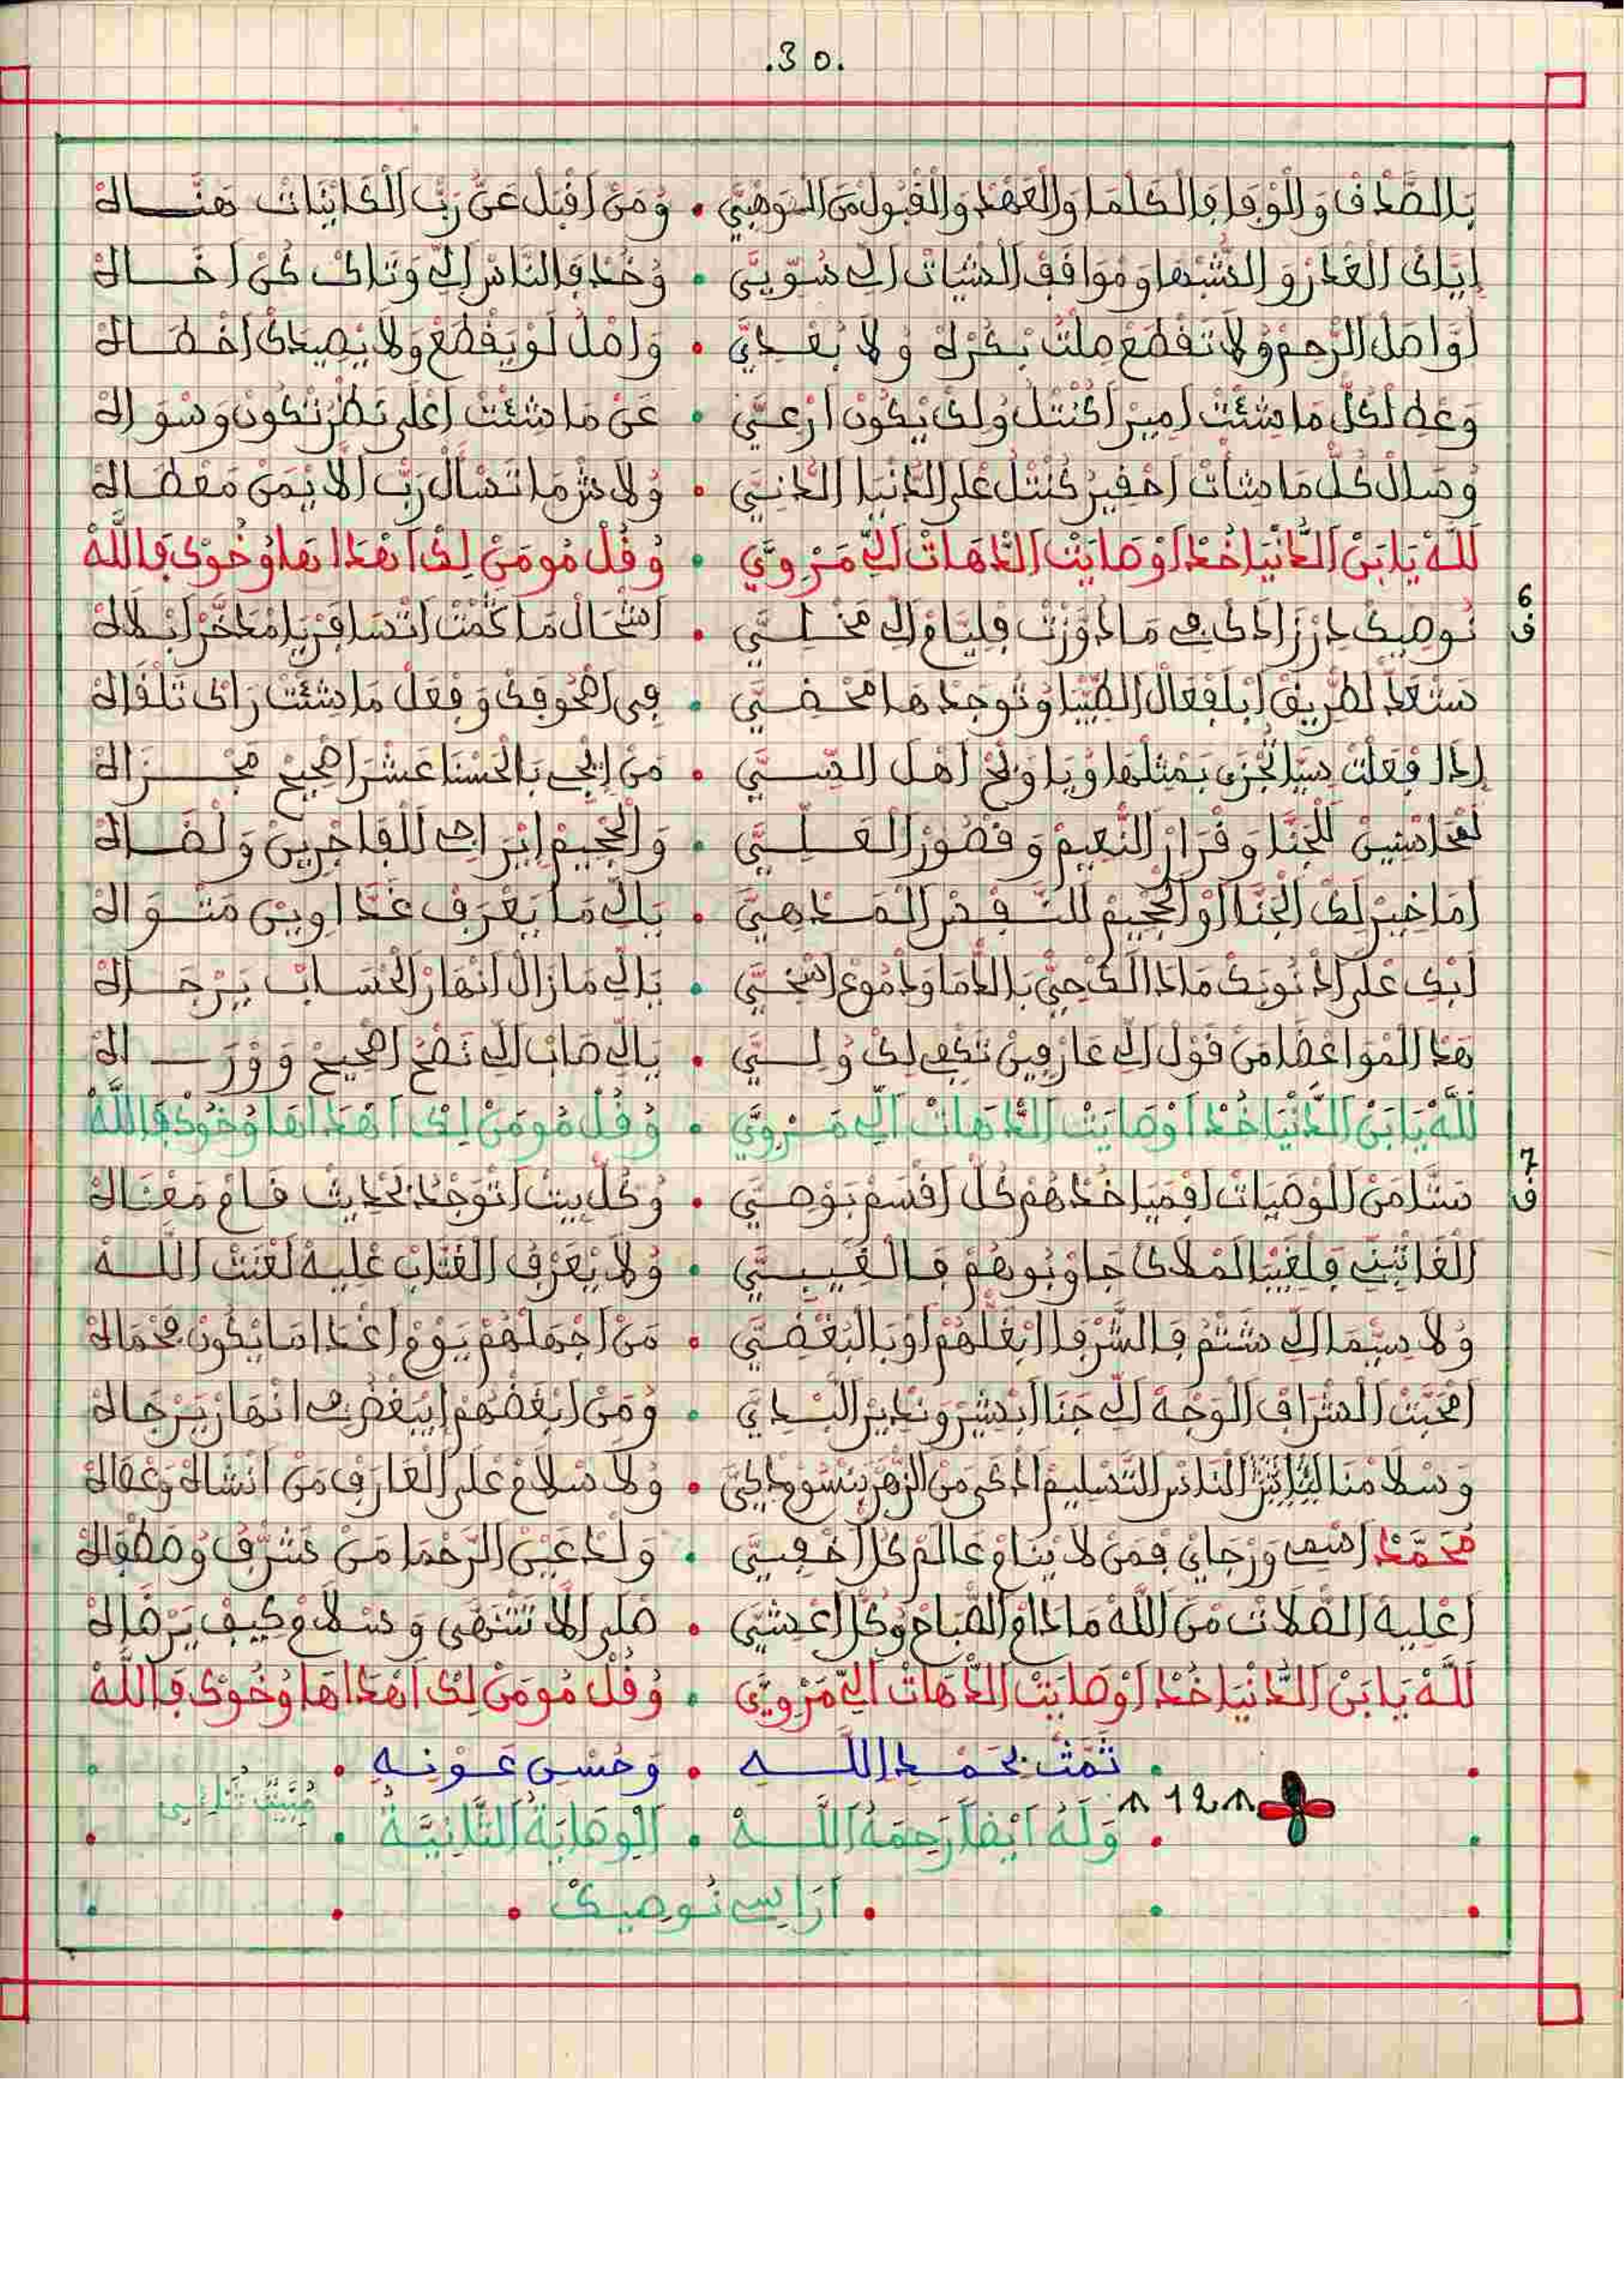 .30.
بَالصَّدْقْ وَالْوْفَا فَالْكَلْمَا وَالْعَهْدْ وَالْقْبُولْ مَنْ الْمَوْهْبِيَّ • وُمَنْ اَقْبَلْ عَنُّ رَبّْ الْكَايْنَاتْ هَنَّاهْ
اِيَّاكْ الْغْدَرْ وَالشُّبْهَا وَمْوَافَقْ الشّْيَاتْ الِّي سُوِّيَّ • وُخُدْ فَالنَّاسْ الِّي وَتَاكْ كُنْ اَخَاهْ
لَوَّاصَلْ الرّْحِمْ وُلَا تَقْطَعْ مِلْتْ بْكُرْهْ وُلَا بُعْدِيَّ • وَاصْلُ لَوْ يَقْطَعْ وَلَا يْصِيدَكْ اَخْطَاهْ
وَعْطِ لْكُلّْ مَا شِئْتْ اَمِيرْ اَكُنْتْلُ وُلَكْ يْكُونْ اَرْعِيَّ • عَنْ مَا شِئْتْ اَعْلَى نَظْرْ تْكُونْ وَسْوَاهْ
وُصَالْ كُلّْ مَا شَاتْ اَحْقِيرْ كُنْتْلُ عْلَى الدُّنْيَا الدَّنِيَّ • وُلَا شَرّْ مَا تَسْأَلْ رَبّْ اَلَّا يْمَنْ مَعْطَاهْ
لَلَّهْ يَا بَنْ الدُّنْيَا خُدْ اَوْصَايْتْ الدَّهَاتْ الِّي مَرْوِيَّ • وُقُلْ مُومَنْ لِكْ اَهْدَاهَا وُخُوكْ فَاللَّهْ
6
ف
نُوصِيكْ دِرْ زَادَكْ فِي مَا دَوَّزْتْ فْلِيَّامْ الِّي مَخْلِيَّ • اَشْحَالْ مَا كْمْتْ اَتْسَافَرْ يَا مْدَخَّرْ اَبْلَاهْ
سَتْعَدّْ لَطْرِيقْ اَبْلَفْعَالْ الطِّيبَا وُتُوجَدْهَا مَحْضِيَّ • فِي اَحْقُوقَكْ وَفْعَلْ مَا شِئْتْ رَاكْ تَلْقَاهْ
اِدَا فْعَلْتْ سِيَّا تُجْزَى بَمْثَلْهَا وُيَا وِيحْ اَهْلْ السِّيَّ • مَنْ اِيجِي بَالْحَسْنَا عَشْرَ اَصْحِيحْ مَجْزَاهْ
لَمْحَاسْنِينْ لَلْجَنَّا وَقْرَارْ النَّعِيمْ وَقْصُورْ الْعَلِيَّ • وَالْجْحِيمْ اِيْرَاجِي لَلْفَاجْرِينْ وَلْضَاهْ
اَمَا خِيرْ لَكْ الْجَنَّا اَوْ الْجْحِيمْ لَلنَّفْسْ الْمَدْهِيَّ • يَالِّي مَا يَعْرَفْ غَدَّا وِينْ مَتْوَاهْ
اَبْكِ عْلَى اَدْنُوبَكْ مَادَا لَكْ حَيّْ بَالدّْمَا وَدْمُوعْ اَسْخِيَّ • يَالِّي مَازَالْ اَنْهَارْ الْحْسَابْ يَرْجَاهْ
هَدَا الْمْوَاعْضَا مَنْ قَوْلْ الِّي عَارْفِينْ تَكْفِي لَكْ وُلِيَّ • يَالِّي صَابْ الِّي نَصْحُ اَصْحِيحْ وَوْرَاهْ
لَلَّهْ يَا بَنْ الدُّنْيَا خُدْ اَوْصَايْتْ الدَّهَاتْ الِّي مَرْوِيَّ • وُقُلْ مُومَنْ لِكْ اَهْدَاهَا وُخُوكْ فَاللَّهْ
7
ف
سَتَّا مَنْ الْوْصِيَاتْ اَقْمَيَا خُدْهُمْ كُلّْ اَقْسَمْ بَوْصِيَّ • وُكُلّْ بِيتْ اَتْوَجْدُ بَحْدِيثْ قَامْ مَعْنَاهْ
الْغَايْبِينْ فَلْغِيبَا لَمْلَاكْ جَاوْبُوهُمْ فَالْغَيْبِيَّ • وُلَا يْعَرْفُ الْغَتَّابْ عْلِيهْ لَعْنَتْ اللَّهْ
وُلَا سِيَّمَا الِّي شَتْمُ فَالشُّرْفَا اَبْغَلّْهُمْ اَوْ بَالْبُغْضِيَّ • مَنْ اَجْهَلْهُمْ يَوْمْ اَغْدَا مَا يْكُونْ مَحْمَاهْ
اَمْحَبَّتْ الشّْرَافْ الْوَجْهْ الِّي جَنَا اَبْشِيرْ وَنْدِيرْ الْبْدِيَّ • وُمَنْ اَبْغَضْهُمْ اِيبَغْضُ فِي اَنْهَارْ يَرْجَاهْ
وَسْلَامْنَا لَلنَّاسْ التَّسْلِيمْ اَدْكَى مَنْ الزّْهَرْ بَنْسُومْ دْكِيَّ • وُلَا سْلَامْ عْلَى الْعَارَفْ مَنْ اَنْشَاهْ وَعْفَاهْ
مُحَمَّدْ اَسْمِي وَرْجَايْ فَمَنْ لَا يْنَامْ عَالَمْ كُلّْ اَخْفِيَّ • وَلْدْ عَيْنْ الرَّحْمَا مَنْ شَرّْفُ وُصَطْفَاهْ
اَعْلِيهْ الصّْلَاتْ مَنْ اللَّهْ مَادَامْ الصّْبَاحْ وُكُلّْ اَعْشِيَّ • صْلَى اَلَّا تَنْتْهَى وَسْلَامْ كِيفْ يَرْضَاهْ
لَلَّهْ يَا بَنْ الدُّنْيَا خُدْ اَوْصَايْتْ الدَّهَاتْ الِّي مَرْوِيَّ • وُقُلْ مُومَنْ لِكْ اَهْدَاهَا وُخُوكْ فَاللَّهْ
تَمَّتْ بِحَمْدِ اللَّهِ • وَحُسْنِ عَوْنِهِ
12
وَلَهُ أَيْضاً رَحِمَهُ اللَّهْ • الْوِصَايَةُ الثَّانِيَّةُ
اَرَاسِي نُوصِيكْ